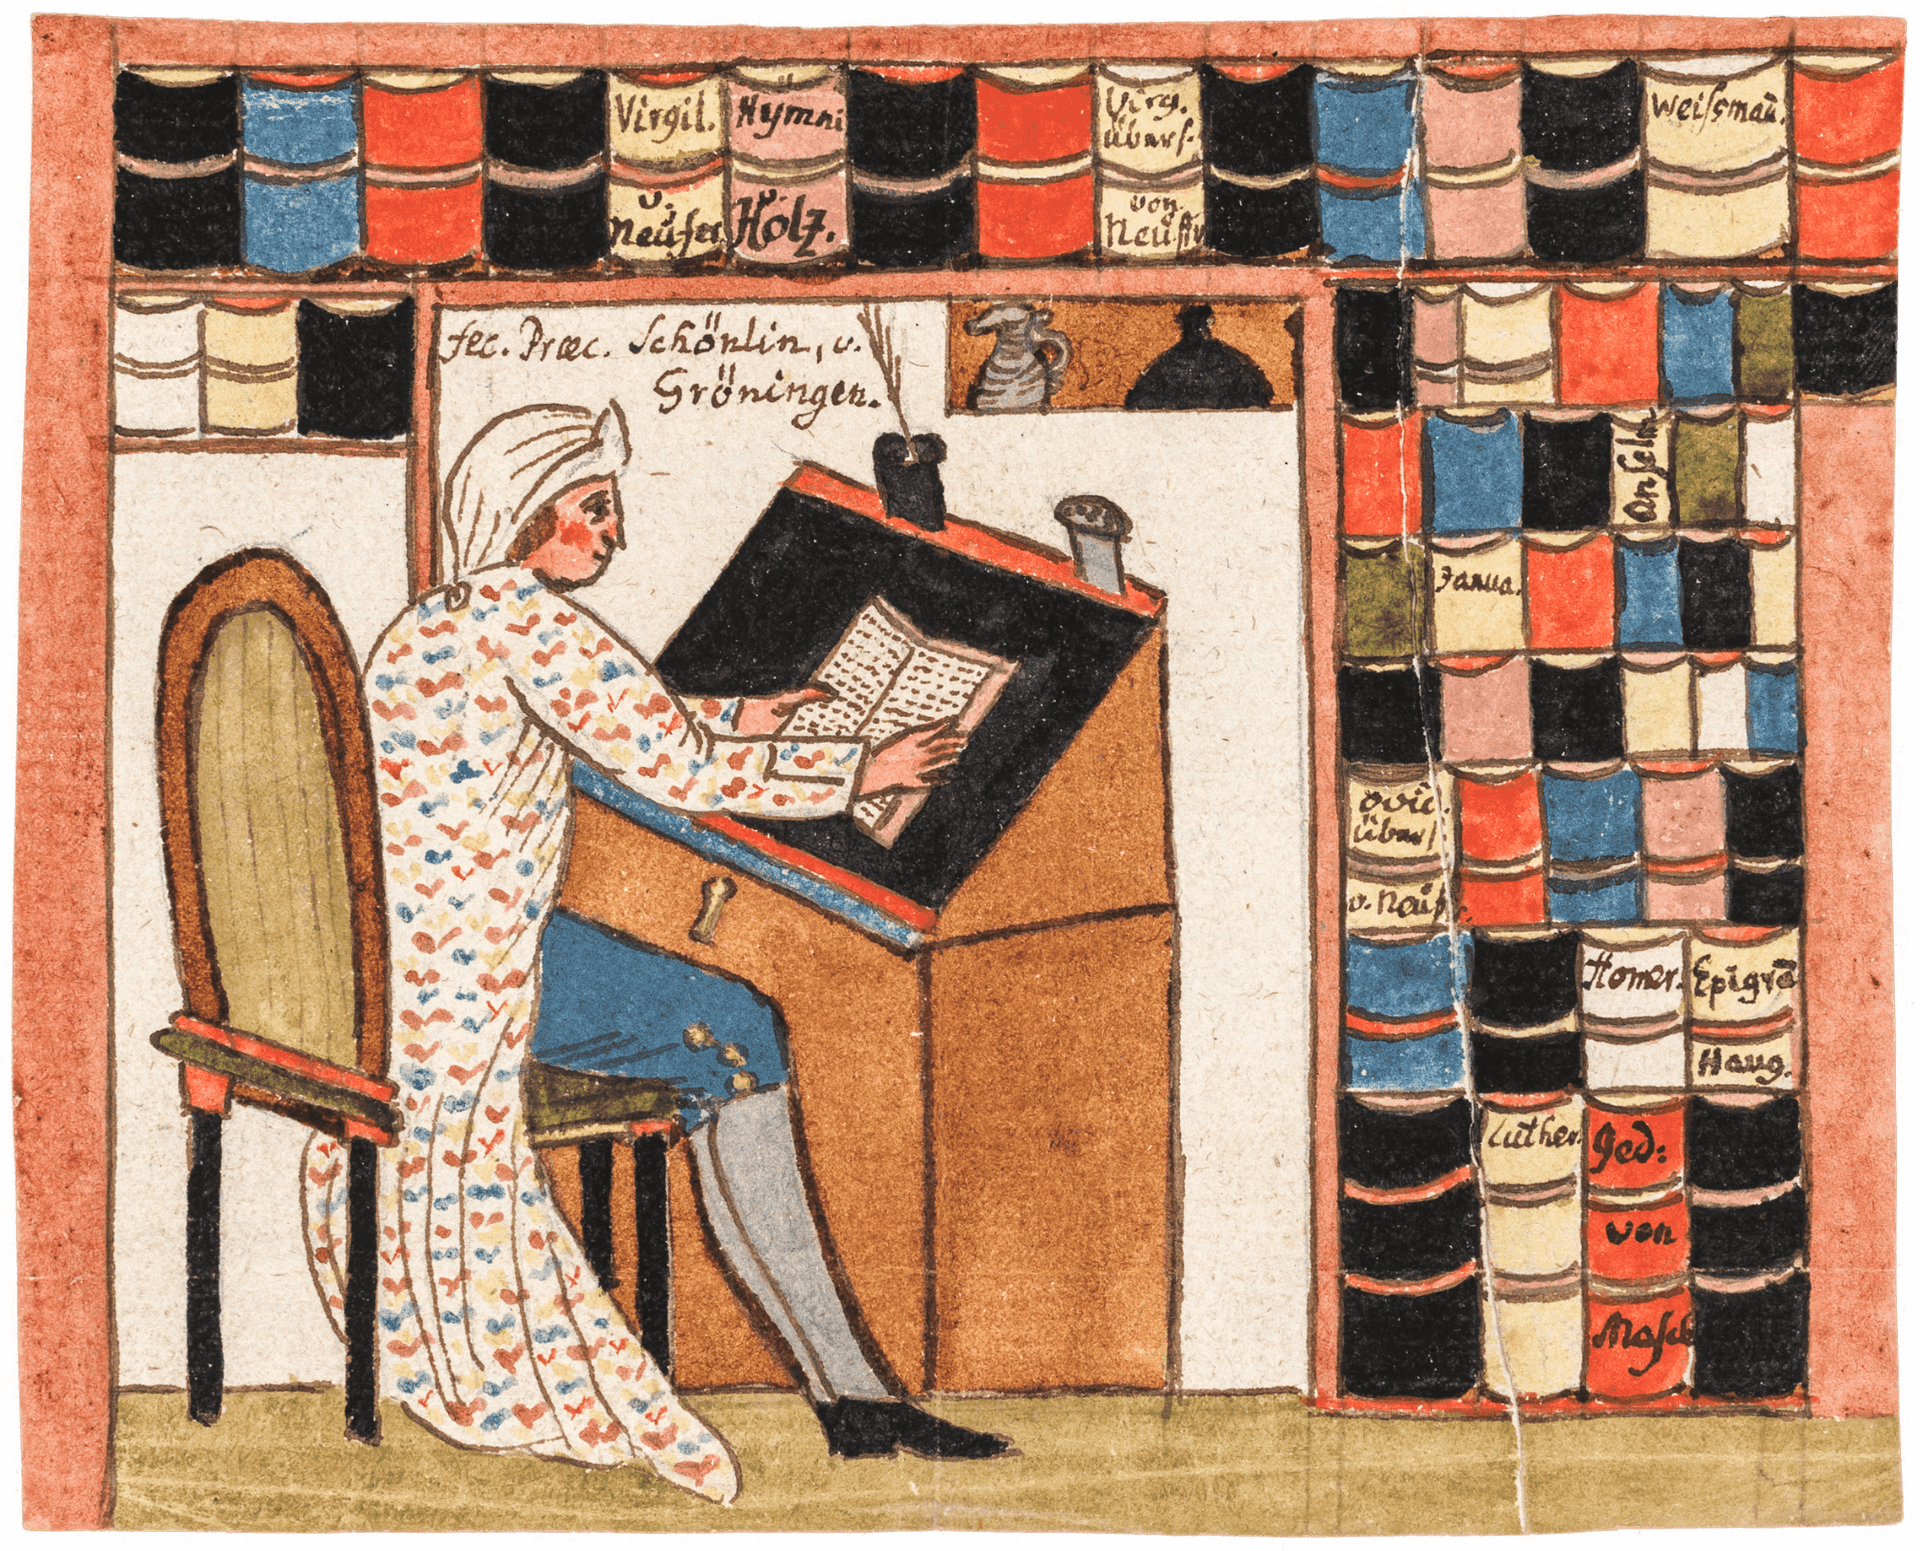 Virgil.
v.
Neüfer
Hymni
Hölz.
Virg.
übers.
von
Neüffer
Weissmañ.
fec. Præc. Schönlin, v.
Gröningen.
Anselm
Janua.
Ovid.
übers.
v. Neüf
Homer.
Epigra
Haug.
Luther.
Ged:
von